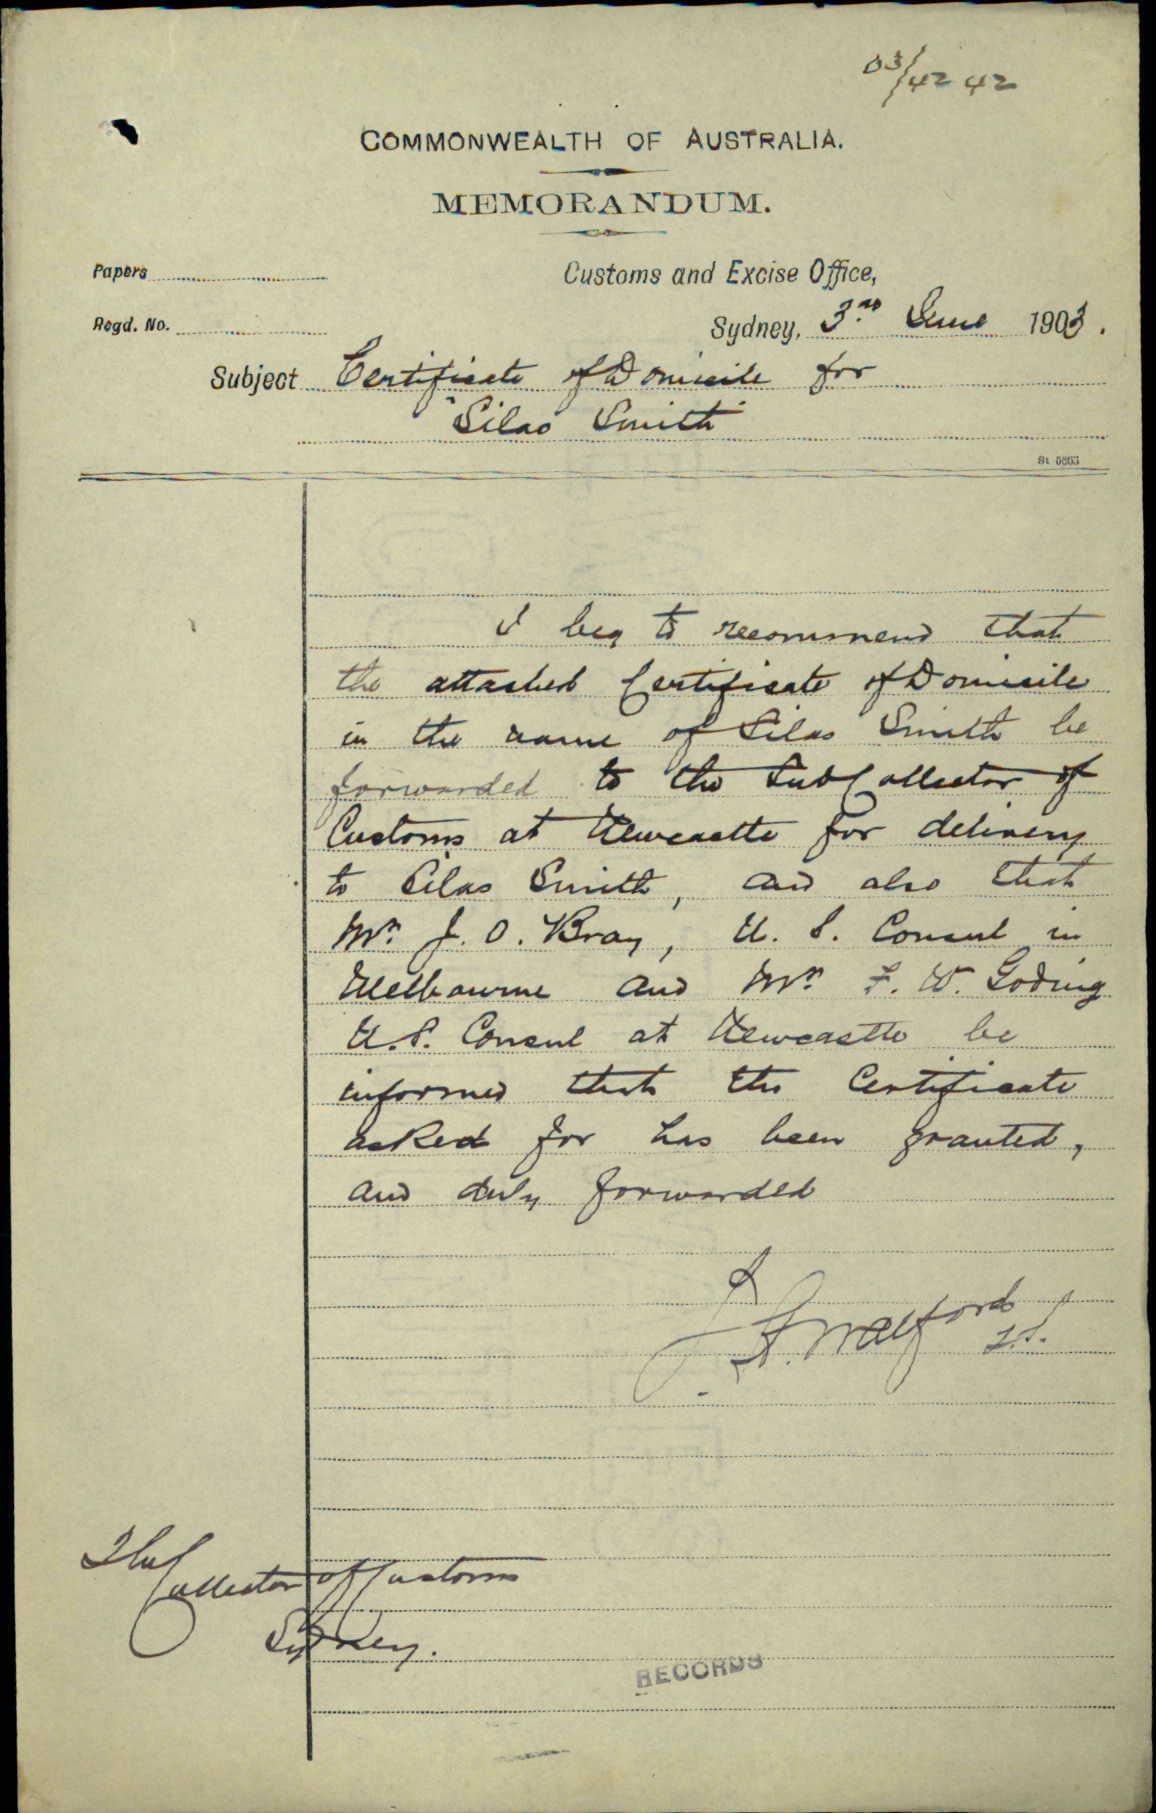 03/4242
COMMONWEALTH OF AUSTRALIA.
MEMORANDUM.
Papers
Customs and Excise Office,
Regd. No.
Sydney, 3rd June 1903.
Subject Certificate of Domicile for
"Silas Smith"
St 5863
I beg to recommend that
the attached Certificate of Domicile
in the name of Silas Smith be
forwarded to the Sub Collector of
Customs at Newcastle for delivery
to Silas Smith, and also that
Mr. J. O. Bray, U. S. Consul in
Melbourne and Mr. F. W. Goding
U.S. Consul at Newcastle be
informed that the Certificate
asked for has been granted,
and duly forwarded
The
Collector of Customs
Sydney.
RECORDS